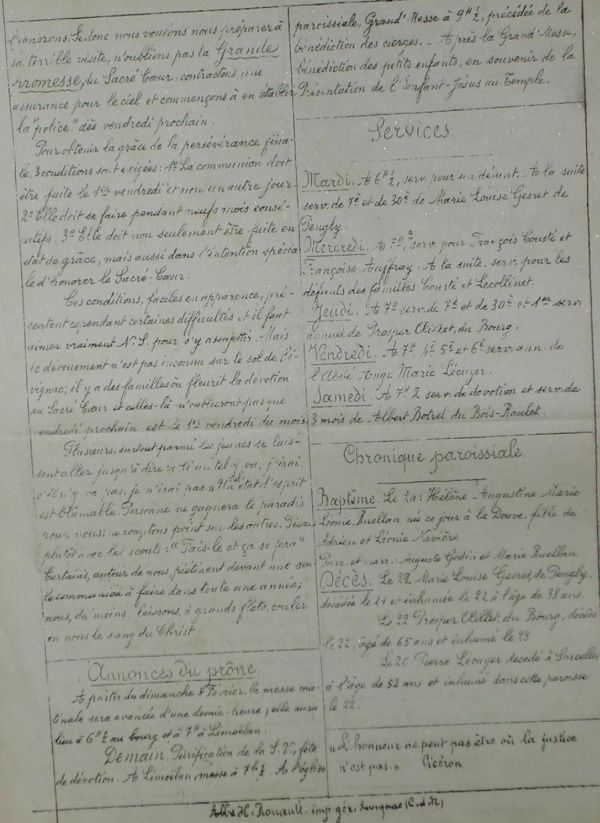 l'ignorons. Si donc nous voulons nous préparer à
sa terrible visite, n'oublions pas la Grande
Promesse, du Sacré Cœur, contractons une
assurance pour le ciel et commençons à en établir
la "police" dès vendredi prochain.
Pour obtenir la grâce de la persévérance fina-
le, 3 conditions sont exigées: 1º La communion doit
être faite le 1er vendredi et non un autre jour.
2º Elle doit se faire pendant neufs mois consé-
cutifs. 3º Elle doit non seulement être faite en
état de grâce, mais aussi dans l'intention spécia-
le d'honorer le Sacré-Cœur.
Ces conditions, faciles en apparence, pré-
sentent cependant certaines difficultés et il faut
aimer vraiment N.S. pour s'y assujettir. Mais
ce dévouement n'est pas inconnu sur le sol de Sé-
vignac; il y a des familles où fleurit la dévotion
au Sacré Cœur et celles-là n'oublieront pas que
vendredi prochain est le 1er vendredi du mois.
Plusieurs, surtout parmi les jeunes se lais-
sent aller jusqu'à dire: « Si un tel y va, j'irai,
s'il n'y va pas, je n'irai pas » Un état d'esprit
est blâmable. Personne ne gagnera le paradis
pour nous: ne comptons point sur les autres. Disons
plutôt avec les scouts: "Fais-le et ça se fera"
Certains, autour de nous, piétinent devant une seu-
le communion à faire dans toute une année;
nous, du moins, laissons, à grands flots, couler
en nous le sang du Christ.
Annonces du prône.
A partir du dimanche 8 Février, la messe ma-
tinale sera avancée d'une demie-heure; elle aura
lieu à 6h½ au bourg et à 7h à Limoëlan.
Demain, Purification de la S.V., fête
de dévotion. A Limoëlan, messe à 7h½. A l'église
paroissiale, Grand' Messe à 9h½, précédée de la
bénédiction des cierges. — Après la Grand-Messe,
bénédiction des petits enfants, en souvenir de la
Présentation de l'Enfant-Jésus au Temple.
Services.
Mardi. A 6h½, serv. pour un défunt. A la suite
serv. de 7e et de 30e de Marie Louise Gesret de
Pengly.
Mercredi. A 7h, serv. pour François Cousté et
Françoise Auffray. A la suite, serv. pour les
défunts des familles Cousté et Lecollinet.
Jeudi. A 7h serv. de 7e et de 30e et 1er serv.
annuel de Prosper, du Bourg.
Vendredi. A 7h, 4e 5e et 6e serv. ann. de
l'Abbé Ange Marie Lécuyer.
Samedi. A 7h 2 serv. de dévotion et serv. de
3 mois de Albert Botrel du Bois-Roulet.
Chronique paroissiale.
Baptême. Le 24: Hélène Augustine Marie
Léonie Ruellan née ce jour à la Douve, fille de
Adrien et Léonie Navière
Parr. et marr.: Auguste Godin et Marie Ruellan
Décès. Le 22 Marie Louise Gesret, de Pengly,
décédée le 21 et inhumée le 22 à l'âge de 38 ans.
Le 23 Prosper, du Bourg, décédé
le 22, âgé de 65 ans et inhumé le 23
Le 20 Pierre Lécuyer décédé à Sarcelles
à l'âge de 52 ans et inhumé dans cette paroisse
le 22.
« L'honneur ne peut pas être où la justice
n'est pas. » Cicéron
Abbé H. Renault. imp. gér. Sévignac (C.d.N)